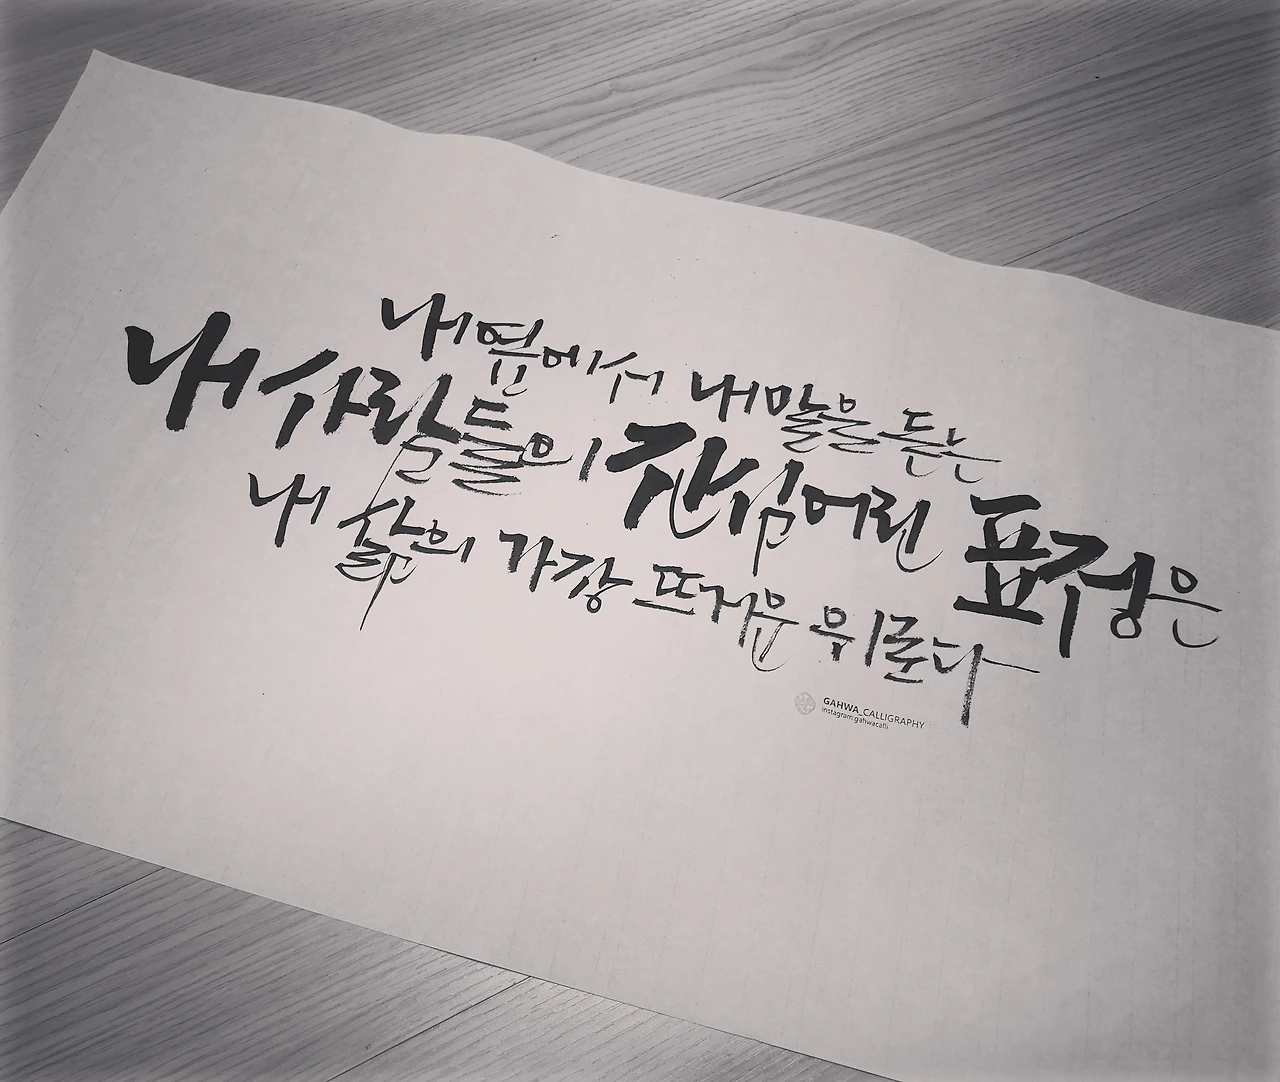 내 옆에서 내 말을 듣는
내 사람들의 진심어린 표정은
내 삶의 가장 뜨거운 위로다
GAHWA_CALLIGRAPHY
instagram:gahwacalli